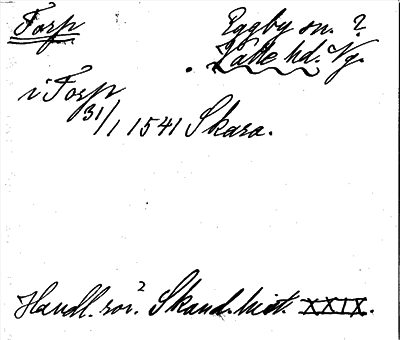 Torp Eggby sn. ?
Valle hd. Vg.
i Torp
31/1 1541 Skara.
Handl. rör. Skand. hist. XXIX.